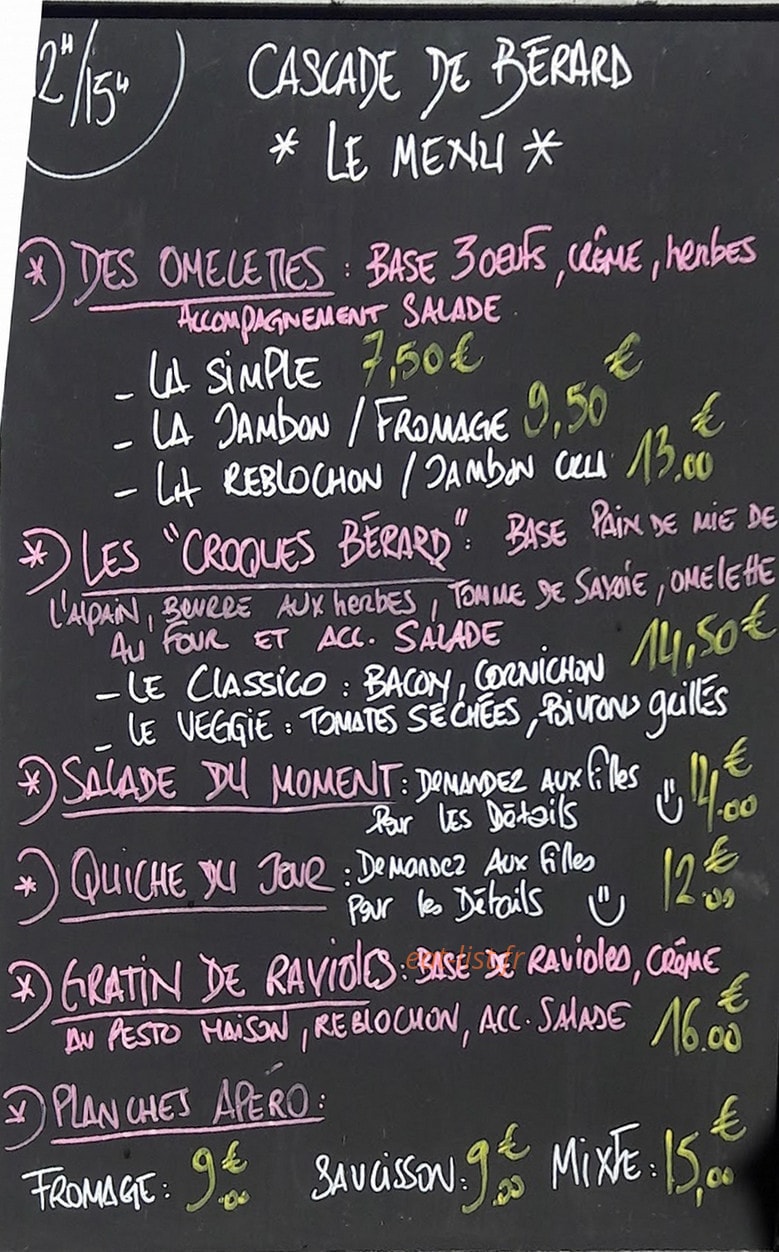 2H/15H
CASCADE DE BÉRARD
* LE MENU *
*) DES OMELETTES : BASE 3 OEUFS, CRÊME, herbes
ACCOMPAGNEMENT SALADE
- LA SIMPLE 7,50€
- LA JAMBON / FROMAGE 9,50€
- LA REBLOCHON / JAMBON CRU 13.00€
*) LES "CROQUES BÉRARD" : BASE PAIN DE MIE DE
L'ALPAIN, BEURRE AUX herbes, TOMME DE SAVOIE, OMELETTE
AU FOUR ET ACC. SALADE 14,50€
- LE CLASSICO : BACON, CORNICHON
- LE VEGGIE : TOMATES SÉCHÉES, POIVRONS GRILLÉS
*) SALADE DU MOMENT : DEMANDEZ AUX filles
POUR LES DÉTAILS 14.00€
*) QUICHE DU JOUR : DEMANDEZ AUX filles
POUR les DÉTAILS 12.00€
*) GRATIN DE RAVIOLES : BASE DE RAVIOLES, CRÊME
eat-list.fr
AU PESTO MAISON, REBLOCHON, ACC. SALADE 16.00€
*) PLANCHES APÉRO :
FROMAGE : 9.00€ SAUCISSON : 9.00€ MIXTE : 15,00€